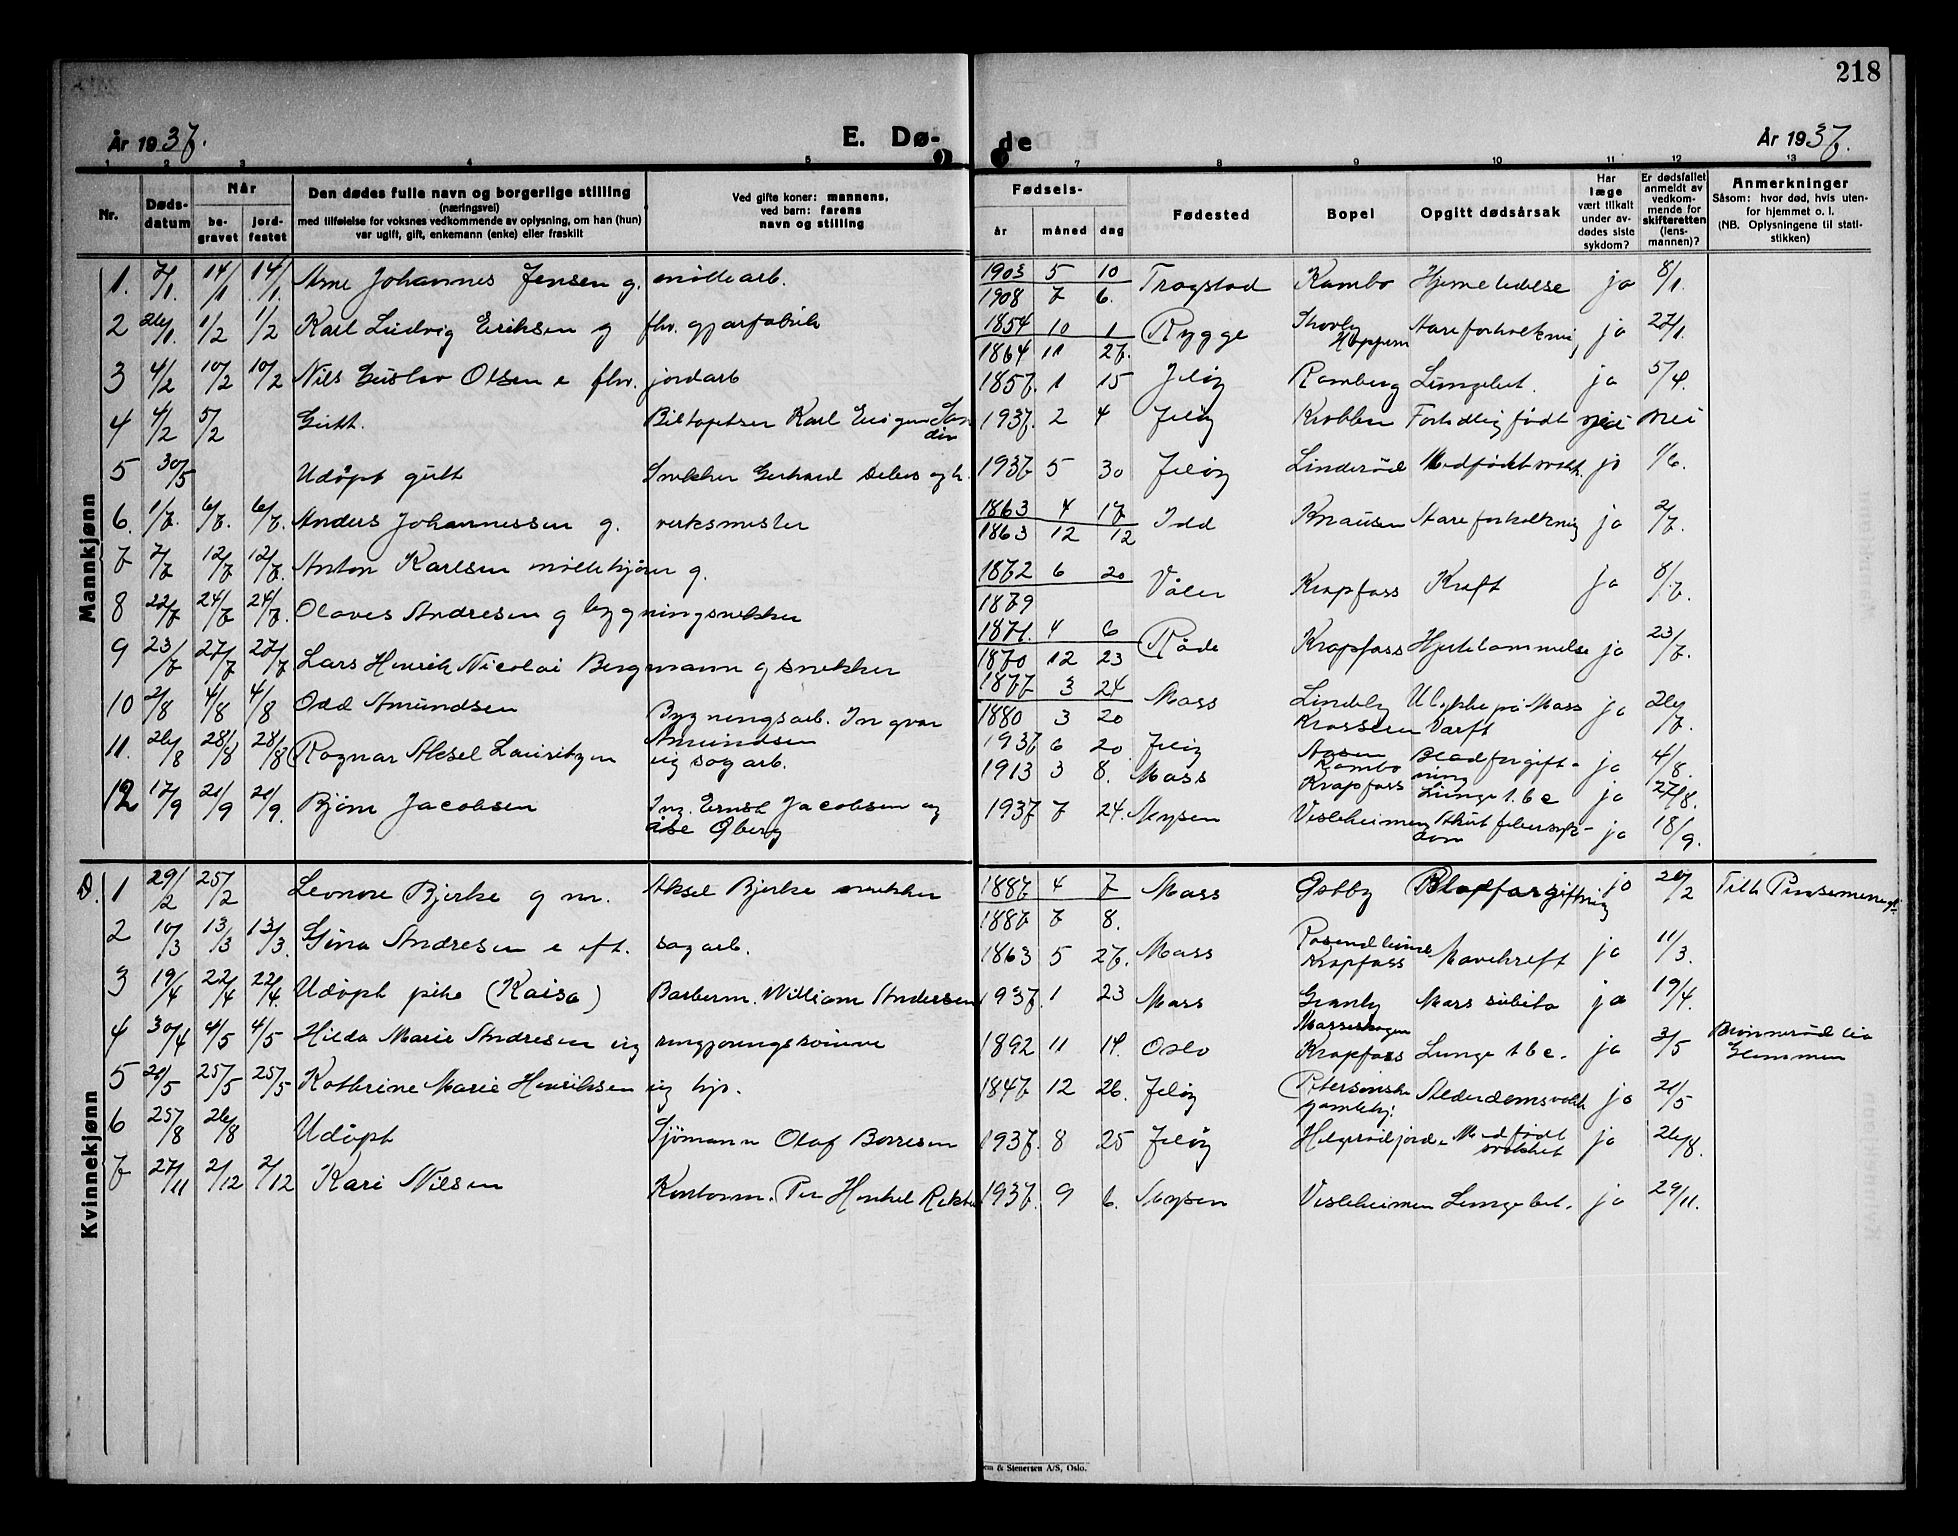 218
År 1937.
E. Dø-
de
År 1937.
1 2 3 4 5 7 8 9 10 11 12 13
Nr.
Døds-
datum
Når
be-
gravet
jord-
festet
Den dødes fulle navn og borgerlige stilling
(næringsvei)
med tilføielse for voksnes vedkommende av oplysning, om han (hun)
var ugift, gift, enkemann (enke) eller fraskilt
Ved gifte koner: mannens,
ved barn: farens
navn og stilling
Fødsels-
år måned dag
Fødested
Bopel
Opgitt dødsårsak
Har
læge
vært tilkalt
under av-
dødes siste
sykdom?
Er dødsfallet
anmeldt av
vedkom-
mende for
skifteretten
(lens-
mannen)?
Anmerkninger
Såsom: hvor død, hvis uten-
for hjemmet o. l.
(NB. Oplysningene til stati-
stikken)
Mannkjønn
1. 7/1. 14/1 14/1. Arne Johannes Jensen g. møllearb. 1903 5 10 Trøgstad Kambo ja 8/1.
1908 7 6.
2 26/1. 1/2 1/2 Karl Ludvig Eriksen g fhv. gj.arfabrik 1854 10 1 Rygge Åreforkalkning ja 27/1.
1864 11 27.
3 4/2 10/2 10/2 Nils Gustav Olsen e fhv. jordarb 1857. 1 15 Jeløy Ramberg Lungebet. ja 5/4.
4 4/2 5/2 Gutt. Karl 1937. 2 4 Jeløy Krobben Fortidlig født nei nei
5 30/5 Udøpt gutt Snekker Gerhard 1937. 5 30 Jeløy Linderød Medfødt svakh. ja 1/6.
6. 1/7. 6/7. 6/7. Anders Johannessen g. verksmester 1863 4 17 Idd Knausen Åreforkalkning ja 2/7.
1863 12 12
7 7/7 12/7 12/7. Anton Karlsen møllekjører g. 1872 6 20 Våler Krapfoss Kreft ja 8/7.
1879
8 22/7 24/7 24/7. Olaves Andresen g bygningsnekker 1871. 4 6 Råde Krapfoss Hjertelammelse ja 23/7.
1870 12 23
9 23/7 27/7 27/7 Lars Henrik Nicolai Bergmann g snekker 1877 3 24 Moss Lindeby Ulykke på Moss ja 26/7.
1880 3 20 Krosseren Værft
10 2/8 4/8 4/8 Odd Amundsen Bygningsarb. Ingvar Amundsen 1937 6 20. Jeløy Åsen Kambo Blodforgiftning ja 4/8.
11. 26/8 28/8 28/8 Ragnar Aksel Lauritzen ug sagarb. 1913 3 8. Moss Krapfoss Lunge t.b.c ja 27/8.
12 17/9 21/9 21/9. Bjørn Jacobsen Ing. Ernst Jacobsen og 1937 7 24. Mysen Visleheimen Akut ja 18/9.
Åse Øberg
Kvinnekjønn
D. 1 29/2 25/2 Leonore Bjerke g m. Aksel Bjerke snekker 1887. 4 7 Moss Østby Blodforgiftning ja 20/2 Tilh. Pinsemenigh.
1887. 7 8.
2 10/3 13/3 13/3. Gina Andresen e eft. sagarb. 1863 5 27. Moss Krapfoss Mavekreft ja 11/3.
3 19/4 22/4 22/4. Udøpt pike (Kaisa) Barberm. William Andersen 1937. 1 23 Moss Granby Mors subita ja 19/4.
4 30/4 4/5 4/5 Hilda Marie Andresen ug rengjøringskvinne 1892 11 14. Oslo Mosseskogen Krapfoss Lunge tbc. ja 3/5 Glemmen
5 20/5 25/5 25/5 Kathrine Marie Henriksen ug hjp. 1847. 12 26. Jeløy Petersønske gamlehj. Alderdomsvakh ja 21/5
6 25/8 26/8 Udøpt Sjømann Olaf Borresen 1937. 8 25 Jeløy Helgerødfjord. Medfødt svakhet ja 26/8.
7 27/11 2/12 2/12 Kari Nilsen Kontorm. Per Henkel 1937. 9 6. Mysen Visleheimen Lungebet. ja 29/11.
& Stenersen A/S, Oslo.